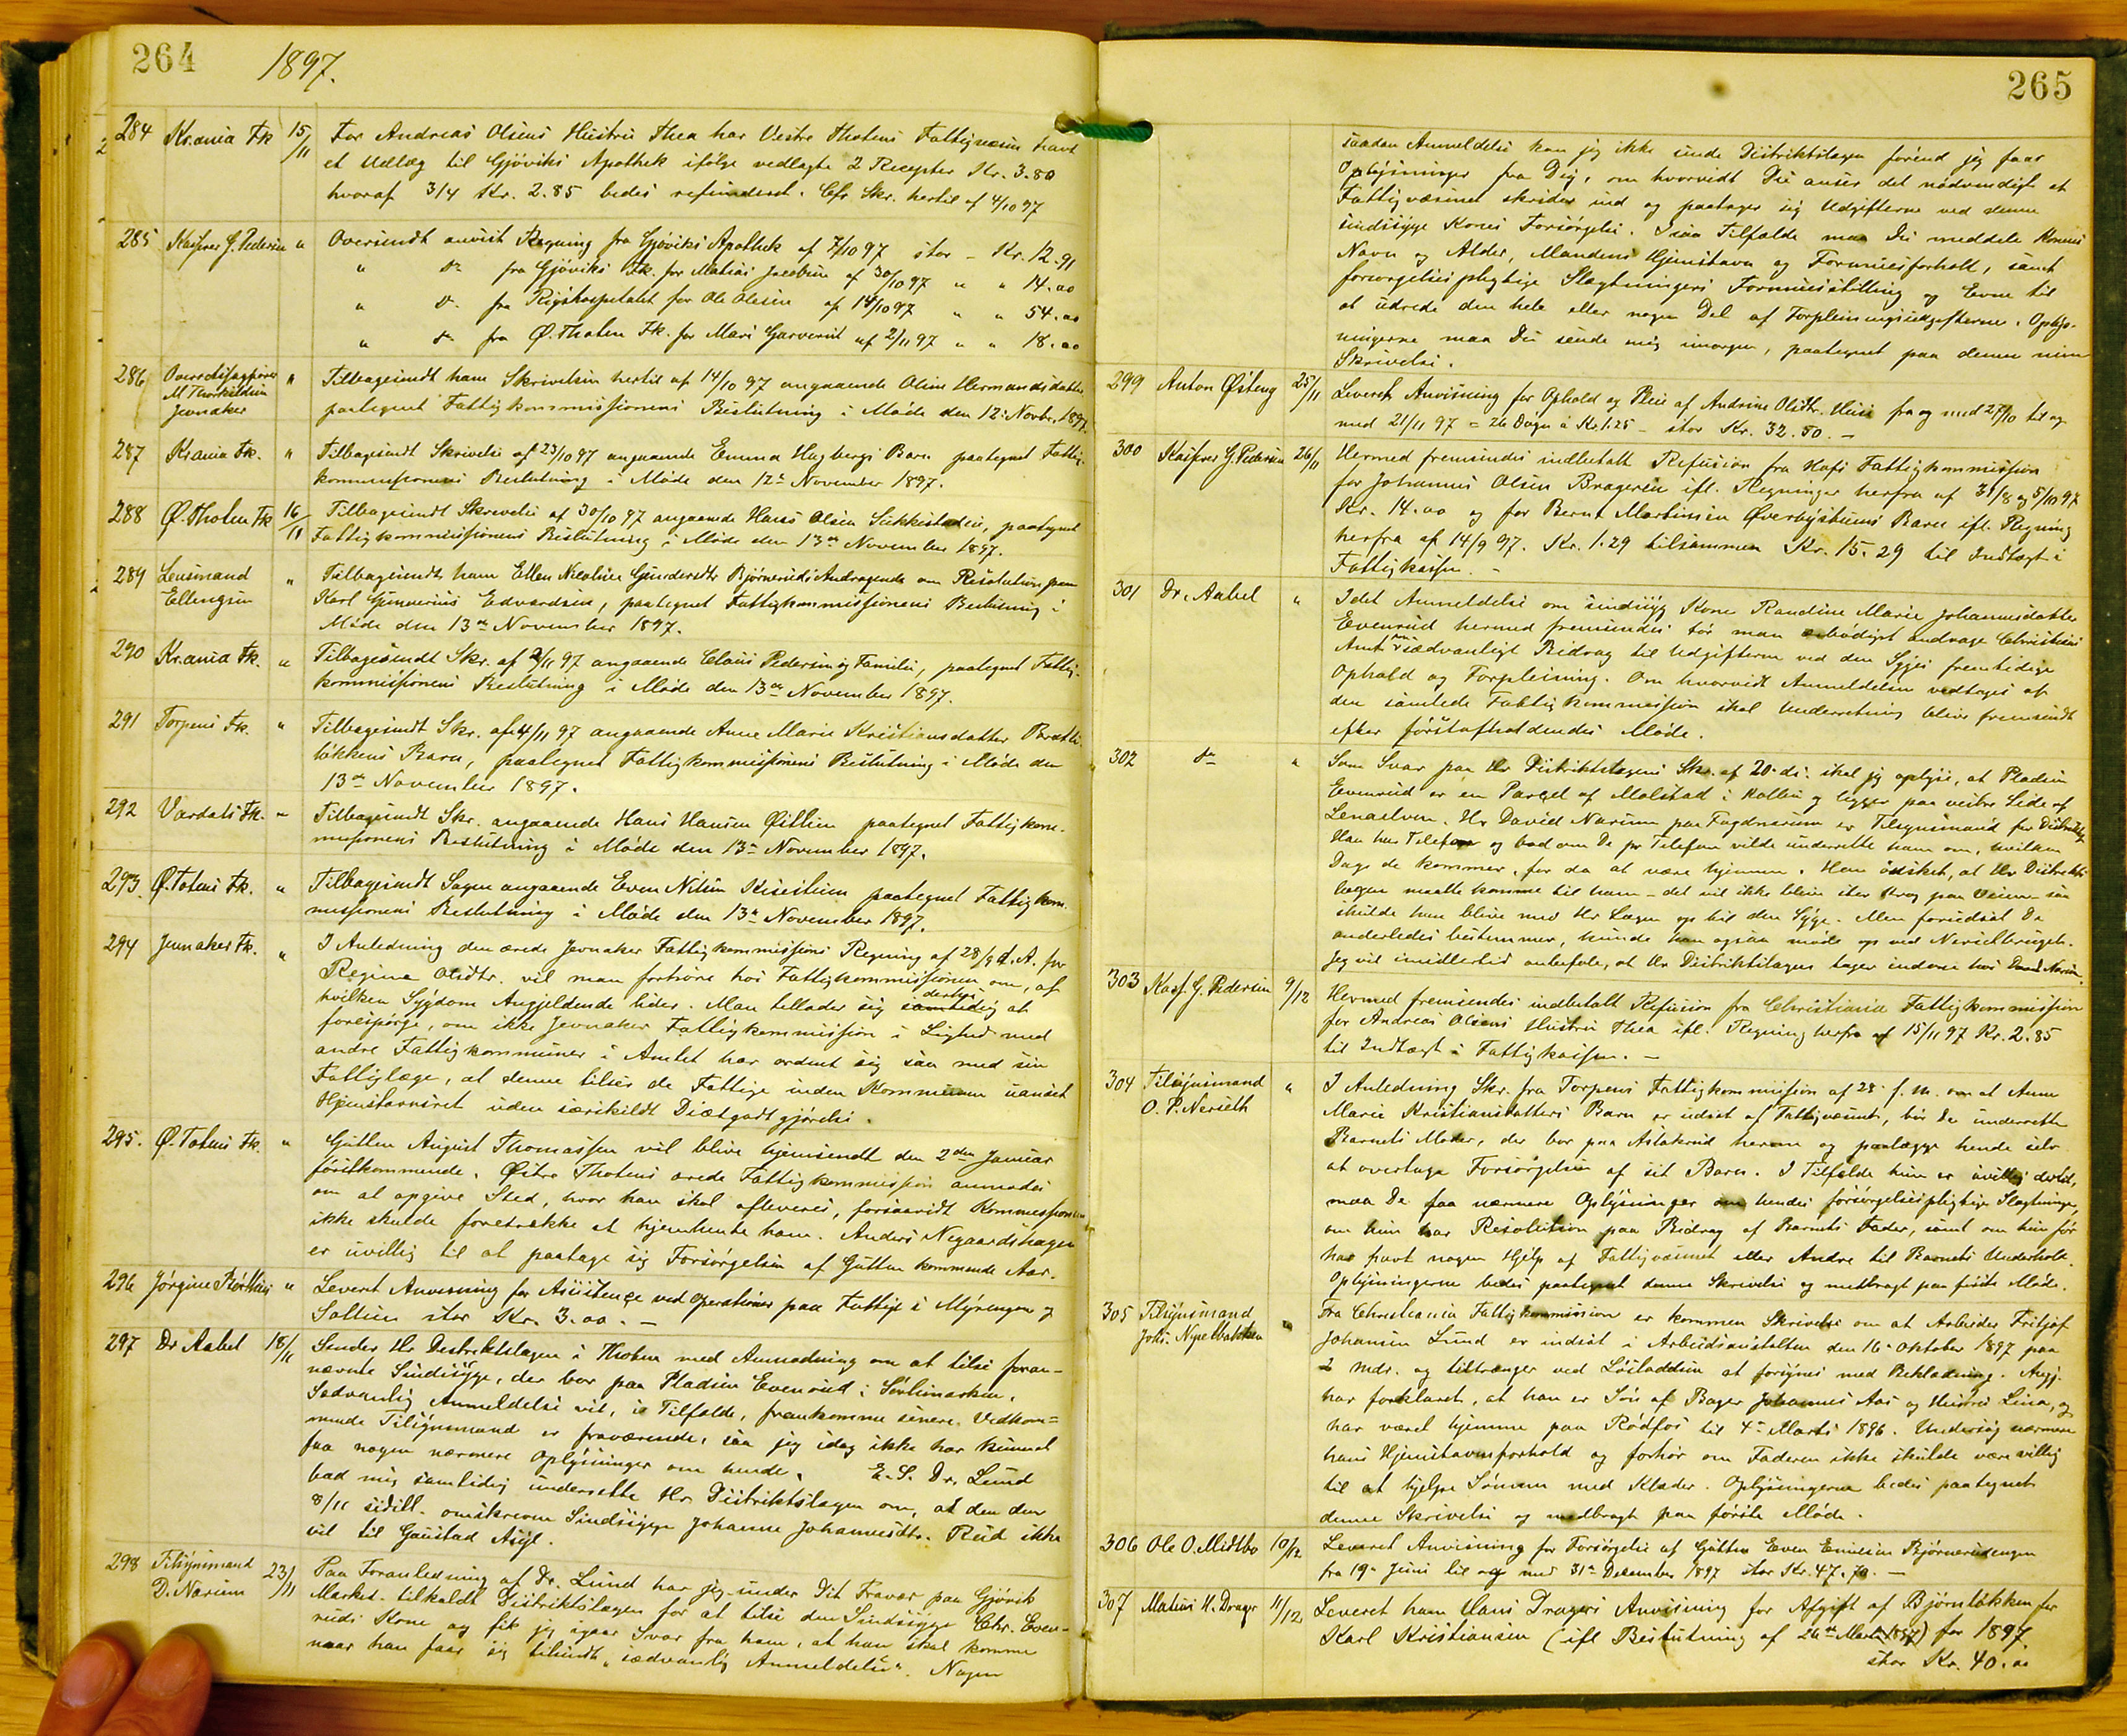 264
1897.
284 Kr.ania Fk 15/11 For Andreas Olsens Hustru Thea har Vestre Thotens Fattigvæsen havt
et Udlæg til Gjöviks Apothek ifölge vedlagte 2 Recepter Kr. 3.80
hvoraf 3/4 Kr. 2.85 bedes refunderet. Cfr Skr. hertil af 4/10 97
285 Kasserer G. Pedersen " Oversendt anvist Regning fra Gjöviks Apothek af 7/10 97 stor - Kr. 12.91
" do fra Gjöviks Fk. for Matias Jacobsen af 30/10 97 " " 14.00
" do fra Rigshospitalet for Ole Olesen af 14/10 97 " " 54.00
" do fra Ø. Thoten Fk. for Mari Garverud af 2/11 97 " " 18.00
286 Overretssagförer " Tilbagesendt ham Skrivelsen hertil af 14/10 97 angaaende Oline Hermandsdatter,
M Thorkildsen
Jevnaker paategnet Fattigkommissionens Beslutning i Möde den 12: Novbr. 1897.
287 Kr.ania Fk. " Tilbagesendt Skrivelse af 23/10 97 angaaende Emma Hagbergs Barn paategnet Fattig-
kommissionens Beslutning i Möde den 12te November 1897.
288 Ø. Thoten Fk 16/11 Tilbagesendt Skrivelse af 30/10 97 angaaende Hans Olsen Sukkestadeie, paategnet
Fattigkommissionens Beslutning i Möde den 13de November 1897.
289 Lensmand " Tilbagesendt ham Ellen Nicoline Gundersdtr Björneruds Andragende om Resolution paa
Ellengsen Karl Gunnerius Edvardsen, paategnet Fattigkommissionens Beslutning i
Möde den 13de November 1897.
290 Kr.ania Fk. " Tilbagesendt Skr. af 2/11 97 angaaende Claus Pedersen og Familie, paategnet Fattig-
kommissionens Beslutning i Möde den 13de November 1897.
291 Torpens Fk. " Tilbagesendt Skr. af 4/11 97 angaaende Anne Marie Kristiansdatter Bratli-
løkkens Barn, paategnet Fattigkommissionens Beslutning i Möde den
13de November 1897.
292 Vardals Fk. " Tilbagesendt Skr. angaaende Hans Hansen Østlien paategnet Fattigkom-
missionens Beslutning i Möde den 13de November 1897.
293. Ø. Totens Fk. " Tilbagesendt Sagen angaaende Even Nilsen paategnet Fattigkom-
missionens Beslutning i Möde den 13de November 1897.
294 Jevnaker Fk. " I Anledning den ærede Jevnaker Fattigkommissions Regning af 28/9 d. A. for
Regine Olsdtr. vil man forhöre hos Fattigkommissionen om, af
hvilken Sygdom Angjeldende lider. Man tillader sig derhos samtidig at
forespörge, om ikke Jevnaker Fattigkommission i Lighed med
andre Fattigkommuner i Amtet har ordnet sig saa med sin
Fattiglæge, at denne tilser de Fattige inden Kommunen uanset
Hjemstavnsret uden særskildt Diætgodtgjörelse.
295. Ø. Totens Fk. " Gutten August Thomassen vil blive hjemsendt den 2den Januar
förstkommende. Østre Thotens ærede Fattigkommission anmodes
om at opgive Sted, hvor han skal afleveres, forsaavidt Kommissionen
ikke skulde foretrække at hjemhente ham. Anders Negaardshagen
er uvillig til at paatage sig Forsörgelsen af Gutten kommende Aar.
296 Jörgine " Leveret Anvisning for Assistence ved Operationer paa Fattige i Myrengen og
Sollien stor Kr. 3.00. -
297 Dr Aabel 18/11 Sender Hr Destriktslægen i Thoten med Anmodning om at tilse foran-
nævnte Sindssyge, der bor paa Pladsen Evenrud i Sörlimarken.
Sædvanlig Anmeldelse vil, i Tilfælde, fremkomme senere. Vedkom-
mende Tilsynsmand er fraværende, saa jeg idag ikke har kunnet
faa nogen nærmere Oplysninger om hende. E. S. Dr. Lund
bad mig samtidig underrette Hr Distriktslægen om, at den den
8/11 sidstl. omskrevne Sindssyge Johanne Johannesdtr. Rud ikke
vil til Gaustad Asyl.
298 Tilsynsmand 23/11 Paa Foranledning af Dr. Lund har jeg under Dit Fravær paa Gjövik
D. Narum Marked tilkaldt Distriktslægen for at tilse den Sindssyge Chr. Even-
ruds Kone og fik jeg igaar Svar fra ham, at han skal komme
naar han faar sig tilsendt "sædvanlig Anmeldelse". Nogen
265
saadan Anmeldelse kan jeg ikke sende Distriktslægen förend jeg faar
Oplysninger fra Dig, om hvorvidt Du anser det nödvendigt at
Fattigvæsenet skrider ind og paatager sig Udgifterne ved denne
sindssyge Kones Forsörgelse. I saa Tilfælde maa Du meddele Konens
Navn og Alder, Mandens Hjemstavn og Formuesforhold, samt
forsörgelsespligtige Slægtningers Formuesstilling og Evne til
at udrede den hele eller nogen Del af Forpleiningsudgifterne. Oplys-
ningerne maa Du sende mig imorgen, paategnet paa denne min
Skrivelse.
299 Anton Østeng 25/11 Leveret Anvisning for Ophold og Pleie af Andrine Olsdtr. fra og med 27/10 til og
med 21/11 97 = 26 Dögn à Kr. 1.25 - stor Kr. 32.50. -
300 Kasserer G. Pedersen 26/11 Hermed fremsendes indbetalt Refusion fra Hofs Fattigkommission
for Johannes Olsen Brageren ifl. Regninger herfra af 31/8 og 5/10 97
Kr. 14.00 og for Bernt Martinsen Øverbyskuens Barn ifl. Regning
herfra af 14/9 97. Kr. 1.29 tilsammen Kr. 15.29 til Indtægt i
Fattigkassen. -
301 Dr. Aabel " Idet Anmeldelse om sindssyg Kone Randine Marie Johannesdatter
Evenrud hermed fremsendes tör man ærbödigst andrage Christians
Amt om sædvanligt Bidrag til Udgifterne ved den Syges fremtidige
Ophold og Forpleining. Om hvorvidt Anmeldelsen vedtages af
den samlede Fattigkommission skal Underretning blive fremsendt
efter förstafholdendes Möde.
302 do " Som Svar paa Hr Distriktslægens Skr. af 20. ds. skal jeg oplyse, at Pladsen
Evenrud er en Parcel af Molstad i Kolbu og ligger paa vestre Side af
Lenaelven. Hr David Narum paa er Tilsynsmand for Distriktet.
Han har Telefon og bad om De pr Telefon vilde underrette ham om, hvilken
Dag de kommer, for da at være hjemme. Han önsket, at Hr Distrikts-
lægen maatte komme til ham - det vil ikke blive stor Krog paa Veien - saa
skulde han blive med Hr Lægen op til den Syge. Men forudsat De
anderledes bestemmer, kunde han ogsaa møde op ved Nersetbrugets.
Jeg vil imidlertid anbefale, at Hr Distriktslægen tager indom hos David Narum.
303 Kass. G. Pedersen 9/12 Hermed fremsendes indbetalt Refusion fra Christiania Fattigkommission
for Andreas Olsens Hustru Thea ifl. Regning herfra af 15/11 97 Kr. 2.85
til Indtægt i Fattigkassen. -
304 Tilsynsmand " I Anledning Skr. fra Torpens Fattigkommission af 28. f. M. om at Anne
O. P. Nerseth Marie Kristiansdatters Barn er udsat af Fattigvæsenet, bör De underrette
Barnets Moder, der bor paa Aslakrud herom og paalægge hende selv
at overtage Forsörgelsen af sit Barn. I Tilfælde hun er uvillig dertil,
maa De faa nærmere Oplysninger om hendes forsörgelsespligtige Slægtninge,
om hun har Resolution paa Bidrag af Barnets Fader, samt om hun för
har havt nogen Hjelp af Fattigvæsenet eller Andre til Barnets Underhold.
Oplysningerne bedes paategnet denne Skrivelse og medbragt paa förste Möde.
305 Tilsynsmand " Fra Christiania Fattigkommission er kommen Skrivelse om at Arbeider Fritjof
Johs. Nysetbakken Johansen Lund er indsat i Arbeidsanstalten den 16. Oktober 1897 paa
2 Mdr. og tiltrænger ved Lösladelsen at forsynes med Beklædning. Angj.
har forklaret, at han er Sön af Bager Johannes Aas og Hustru Lina, og
har været hjemme paa Rödfos til 4. Marts 1896. Undersög nærmere
hans Hjemstavnsforhold og forhör om Faderen ikke skulde være villig
til at hjelpe Sönnen med Klæder. Oplysningerne bedes paategnet
denne Skrivelse og medbragt paa förste Möde.
306 Ole O. Midtbö 10/12 Leveret Anvisning for Forsörgelse af Gutten Even Emilsen Björnerudengen
fra 19. Juni til og med 31te December 1897 stor Kr. 47.70. -
307 Matias H. Drager 11/12 Leveret ham Hans Dragers Anvisning for Afgift af Björnlökken for
Karl Kristiansen (ifl Beslutning af 26de Marts 1897) for 1897.
stor Kr. 40.00